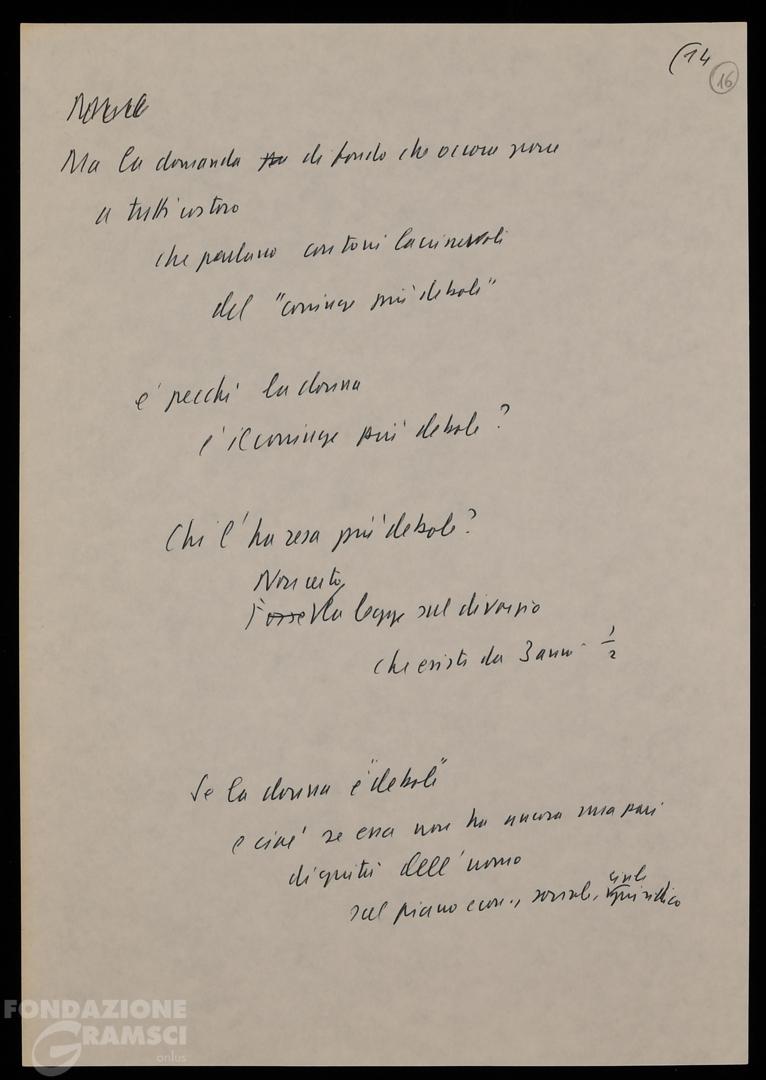 (14
16
Ma la domanda di fondo che occorre porre
a tutti costoro
che parlano con toni lacrimevoli
del "coniuge più debole"
e' perché la donna
è il coniuge più debole?
Chi l'ha resa più debole?
Non certo
Forse la legge sul divorzio
che esiste da 3 anni 1/2
Se la donna è "debole"
e cioè se essa non ha ancora una pari
dignità dell'uomo
sul piano econ., sociale, civile
giuridico
FONDAZIONE
GRAMSCI
onlus